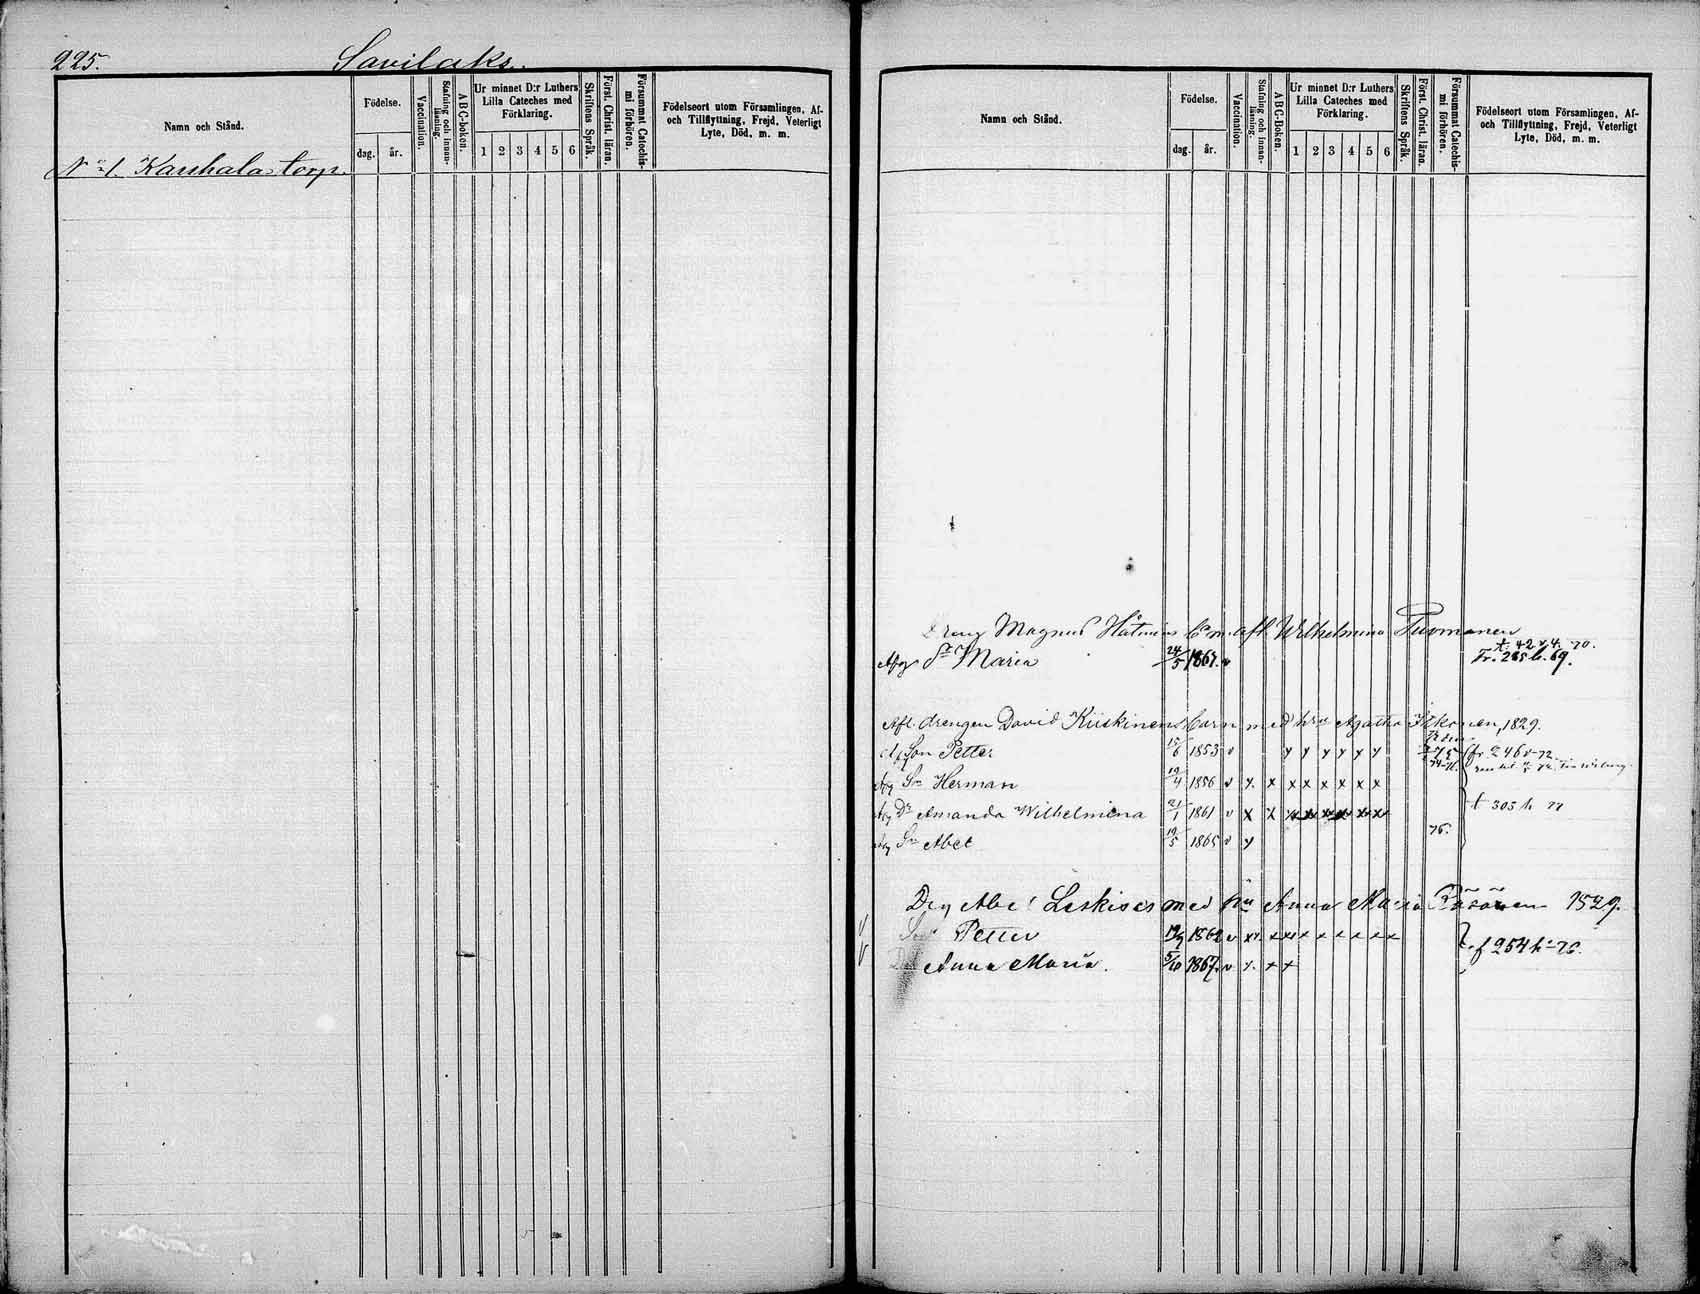 225. Savilaks.
Namn och Stånd.
Födelse.
dag. år.
Vaccination.
Stafning och Innanläsning.
A B C-boken.
Ur minnet D:r Luthers Lilla Cateches med Förklaring.
1 2 3 4 5 6
Skriftens Språk.
Först. Christ. läran.
Försummat Catechismi förhören.
Födelseort utom Församlingen, Af- och Tillflyttning, Frejd, Veterligt Lyte, Död, m. m.
No 1. Karhala torp.
Namn och Stånd.
Födelse.
dag. år.
Vaccination.
Stafning och Innanläsning.
A B C-boken.
Ur minnet D:r Luthers Lilla Cateches med Förklaring.
1 2 3 4 5 6
Skriftens Språk.
Först. Christ. läran.
Försummat Catechismi förhören.
Födelseort utom Församlingen, Af- och Tillflyttning, Frejd, Veterligt Lyte, Död, m. m.
Dreng Magnus afl. Wilhelmina Tuomanen
Maria 24/5 1867. v
Afl. drengen David Kiiskinens barn med hru Agatha Itkonen, 1829.
Son Petter 15/6 1853 v y y y y y y
Sn Herman 19/4 1856 v x. x x x x x x x
Dr Amanda Wilhelmina 21/1 1861 v x x x x x x x x t 303 h 77
Sn Abel 19/5 1865 v y 76.
Drg Abel Leskises med hu Anna Maria Räsänen 1829.
Petter 19/9 1862 v x x x x x x x x
Anna Maria. 5/10 1867. v x. x x f 254 h - 76.